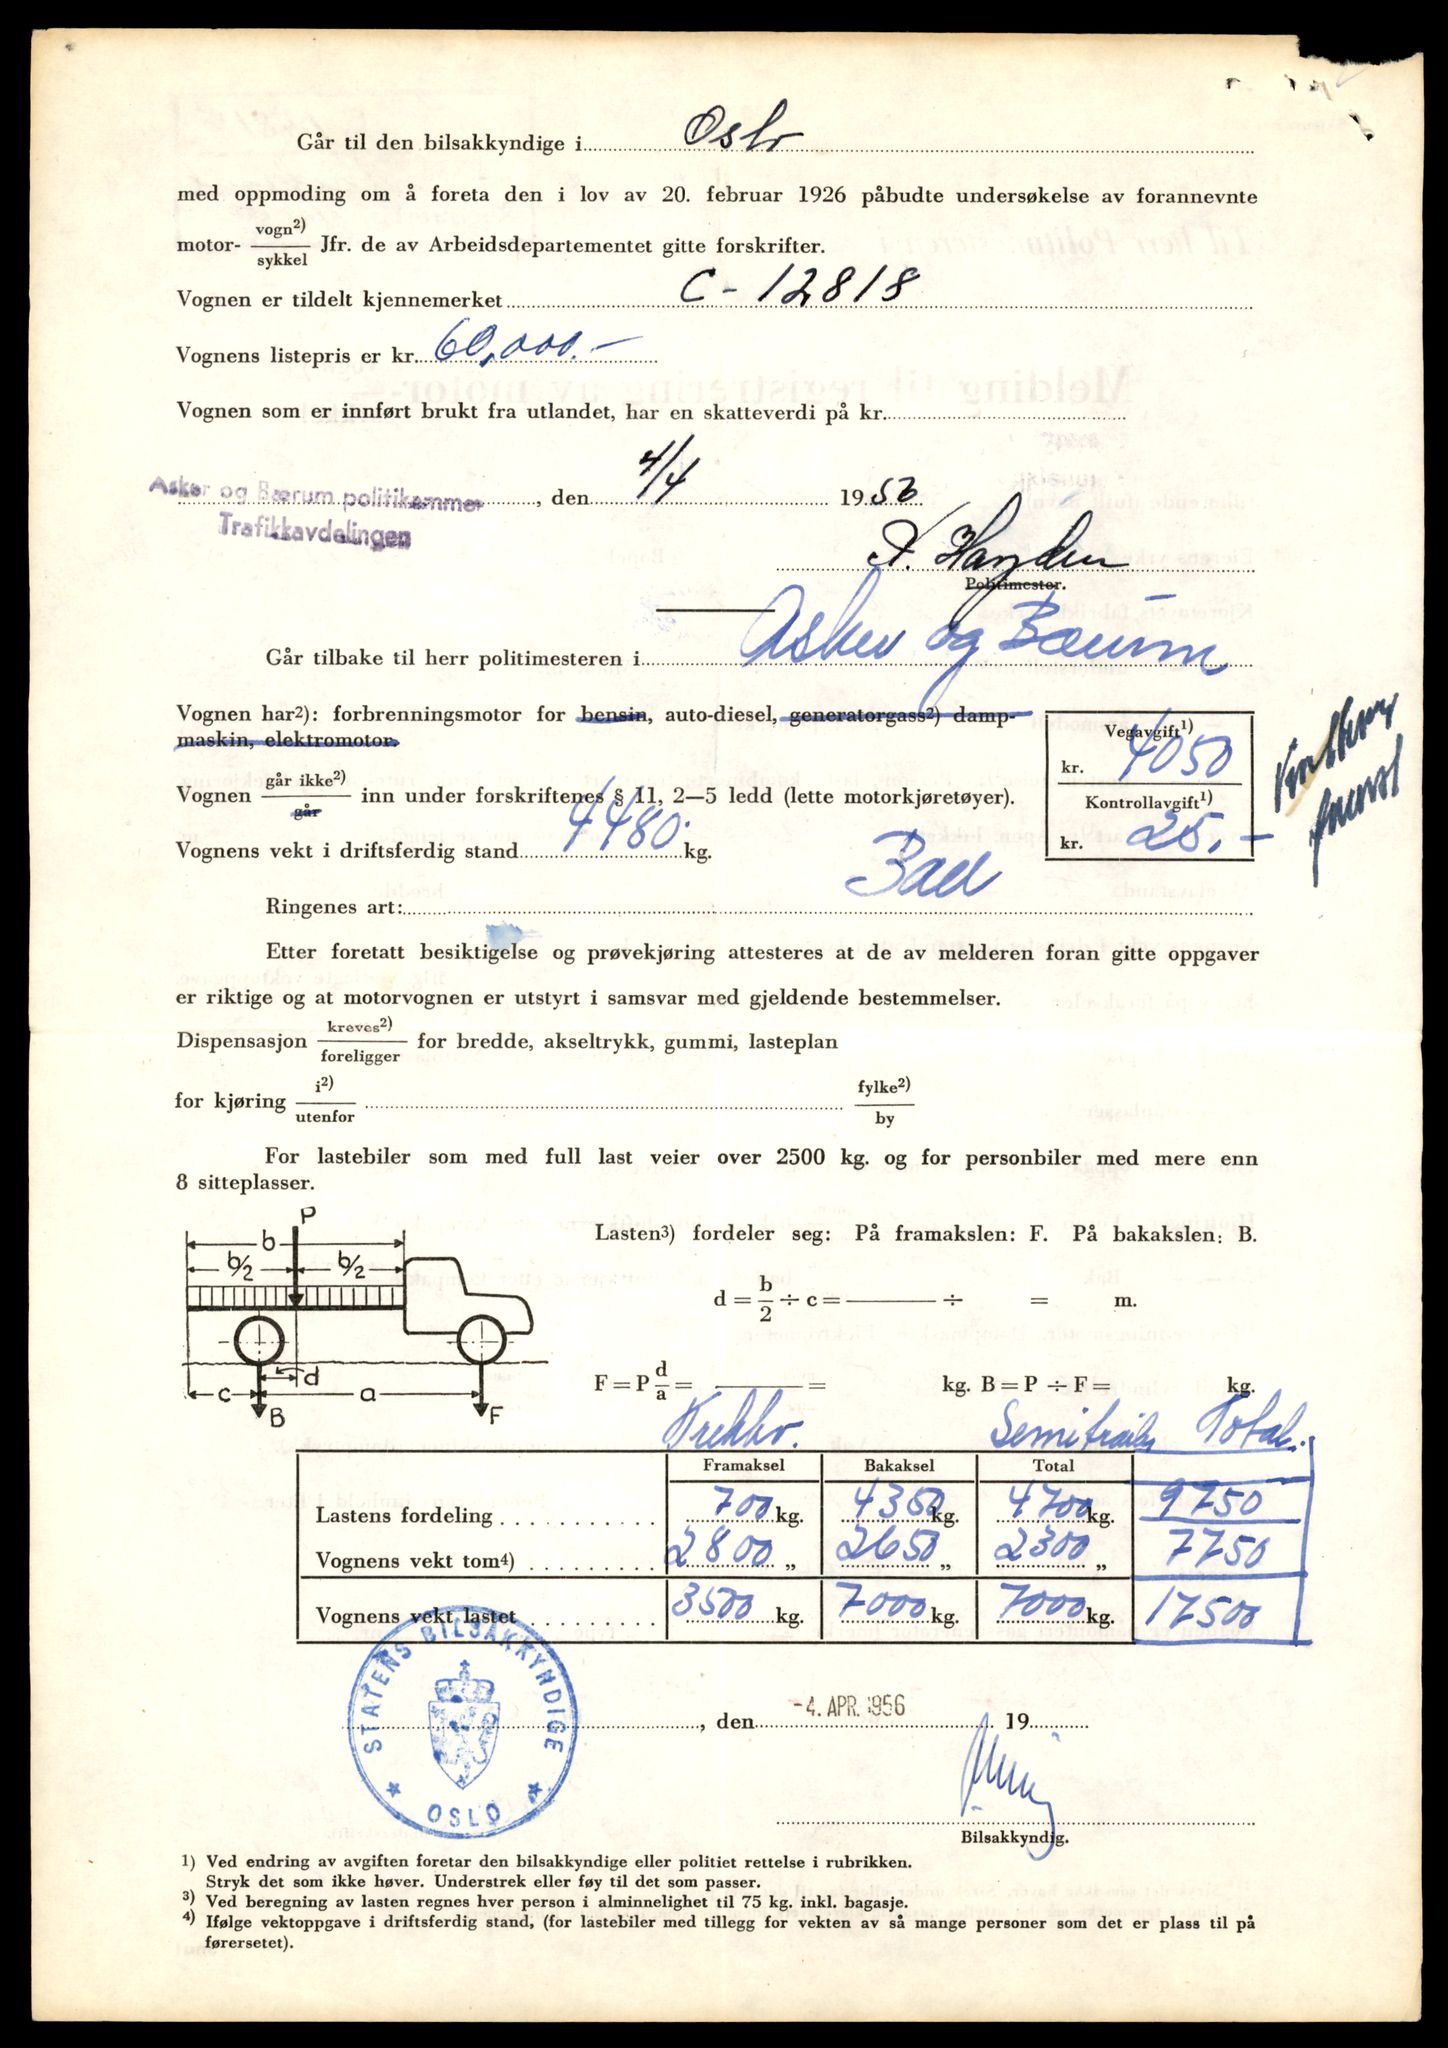 Går til den bilsakkyndige i Oslo
med oppmoding om å foreta den i lov av 20. februar 1926 påbudte undersøkelse av forannevnte
motor- vogn2)/sykkel Jfr. de av Arbeidsdepartementet gitte forskrifter.
Vognen er tildelt kjennemerket C-12818
Vognens listepris er kr. 60,000.-
Vognen som er innført brukt fra utlandet, har en skatteverdi på kr.
Asker og Bærum politikammer, den 4/4 1956
Trafikkavdelingen
Politimester.
Går tilbake til herr politimesteren i Asker og Bærum
Vognen har2): forbrenningsmotor for bensin, auto-diesel, generatorgass2) damp-
maskin, elektromotor.
Vegavgift1)
kr. 4050
Vognen går ikke2)/går inn under forskriftenes § 11, 2—5 ledd (lette motorkjøretøyer).
Kontrollavgift1)
kr. 25.-
Vognens vekt i driftsferdig stand 4480. kg.
Ringenes art:
Etter foretatt besiktigelse og prøvekjøring attesteres at de av melderen foran gitte oppgaver
er riktige og at motorvognen er utstyrt i samsvar med gjeldende bestemmelser.
Dispensasjon kreves2)/foreligger for bredde, akseltrykk, gummi, lasteplan
for kjøring i2)/utenfor fylke2)/by
For lastebiler som med full last veier over 2500 kg. og for personbiler med mere enn
8 sitteplasser.
P
b
b/2 b/2
d
c a
B F
Lasten3) fordeler seg: På framakslen: F. På bakakslen: B.
d = b/2 ÷ c = ÷ = m.
F = P d/a = = kg. B = P ÷ F = kg.
Trekkv. Semitrailer Total.
Framaksel Bakaksel Total
Lastens fordeling 700 kg. 4350 kg. 4700 kg. 9750
Vognens vekt tom4) 2800 „ 2650 „ 2300 „ 7750
Vognens vekt lastet 3500 kg. 7000 kg. 7000 kg. 17500
STATENS BILSAKKYNDIGE
OSLO
, den -4. APR. 1956 19
Bilsakkyndig.
1) Ved endring av avgiften foretar den bilsakkyndige eller politiet rettelse i rubrikken.
Stryk det som ikke høver. Understrek eller føy til det som passer.
3) Ved beregning av lasten regnes hver person i alminnelighet til 75 kg. inkl. bagasje.
4) Ifølge vektoppgave i driftsferdig stand, (for lastebiler med tillegg for vekten av så mange personer som det er plass til på
førersetet).